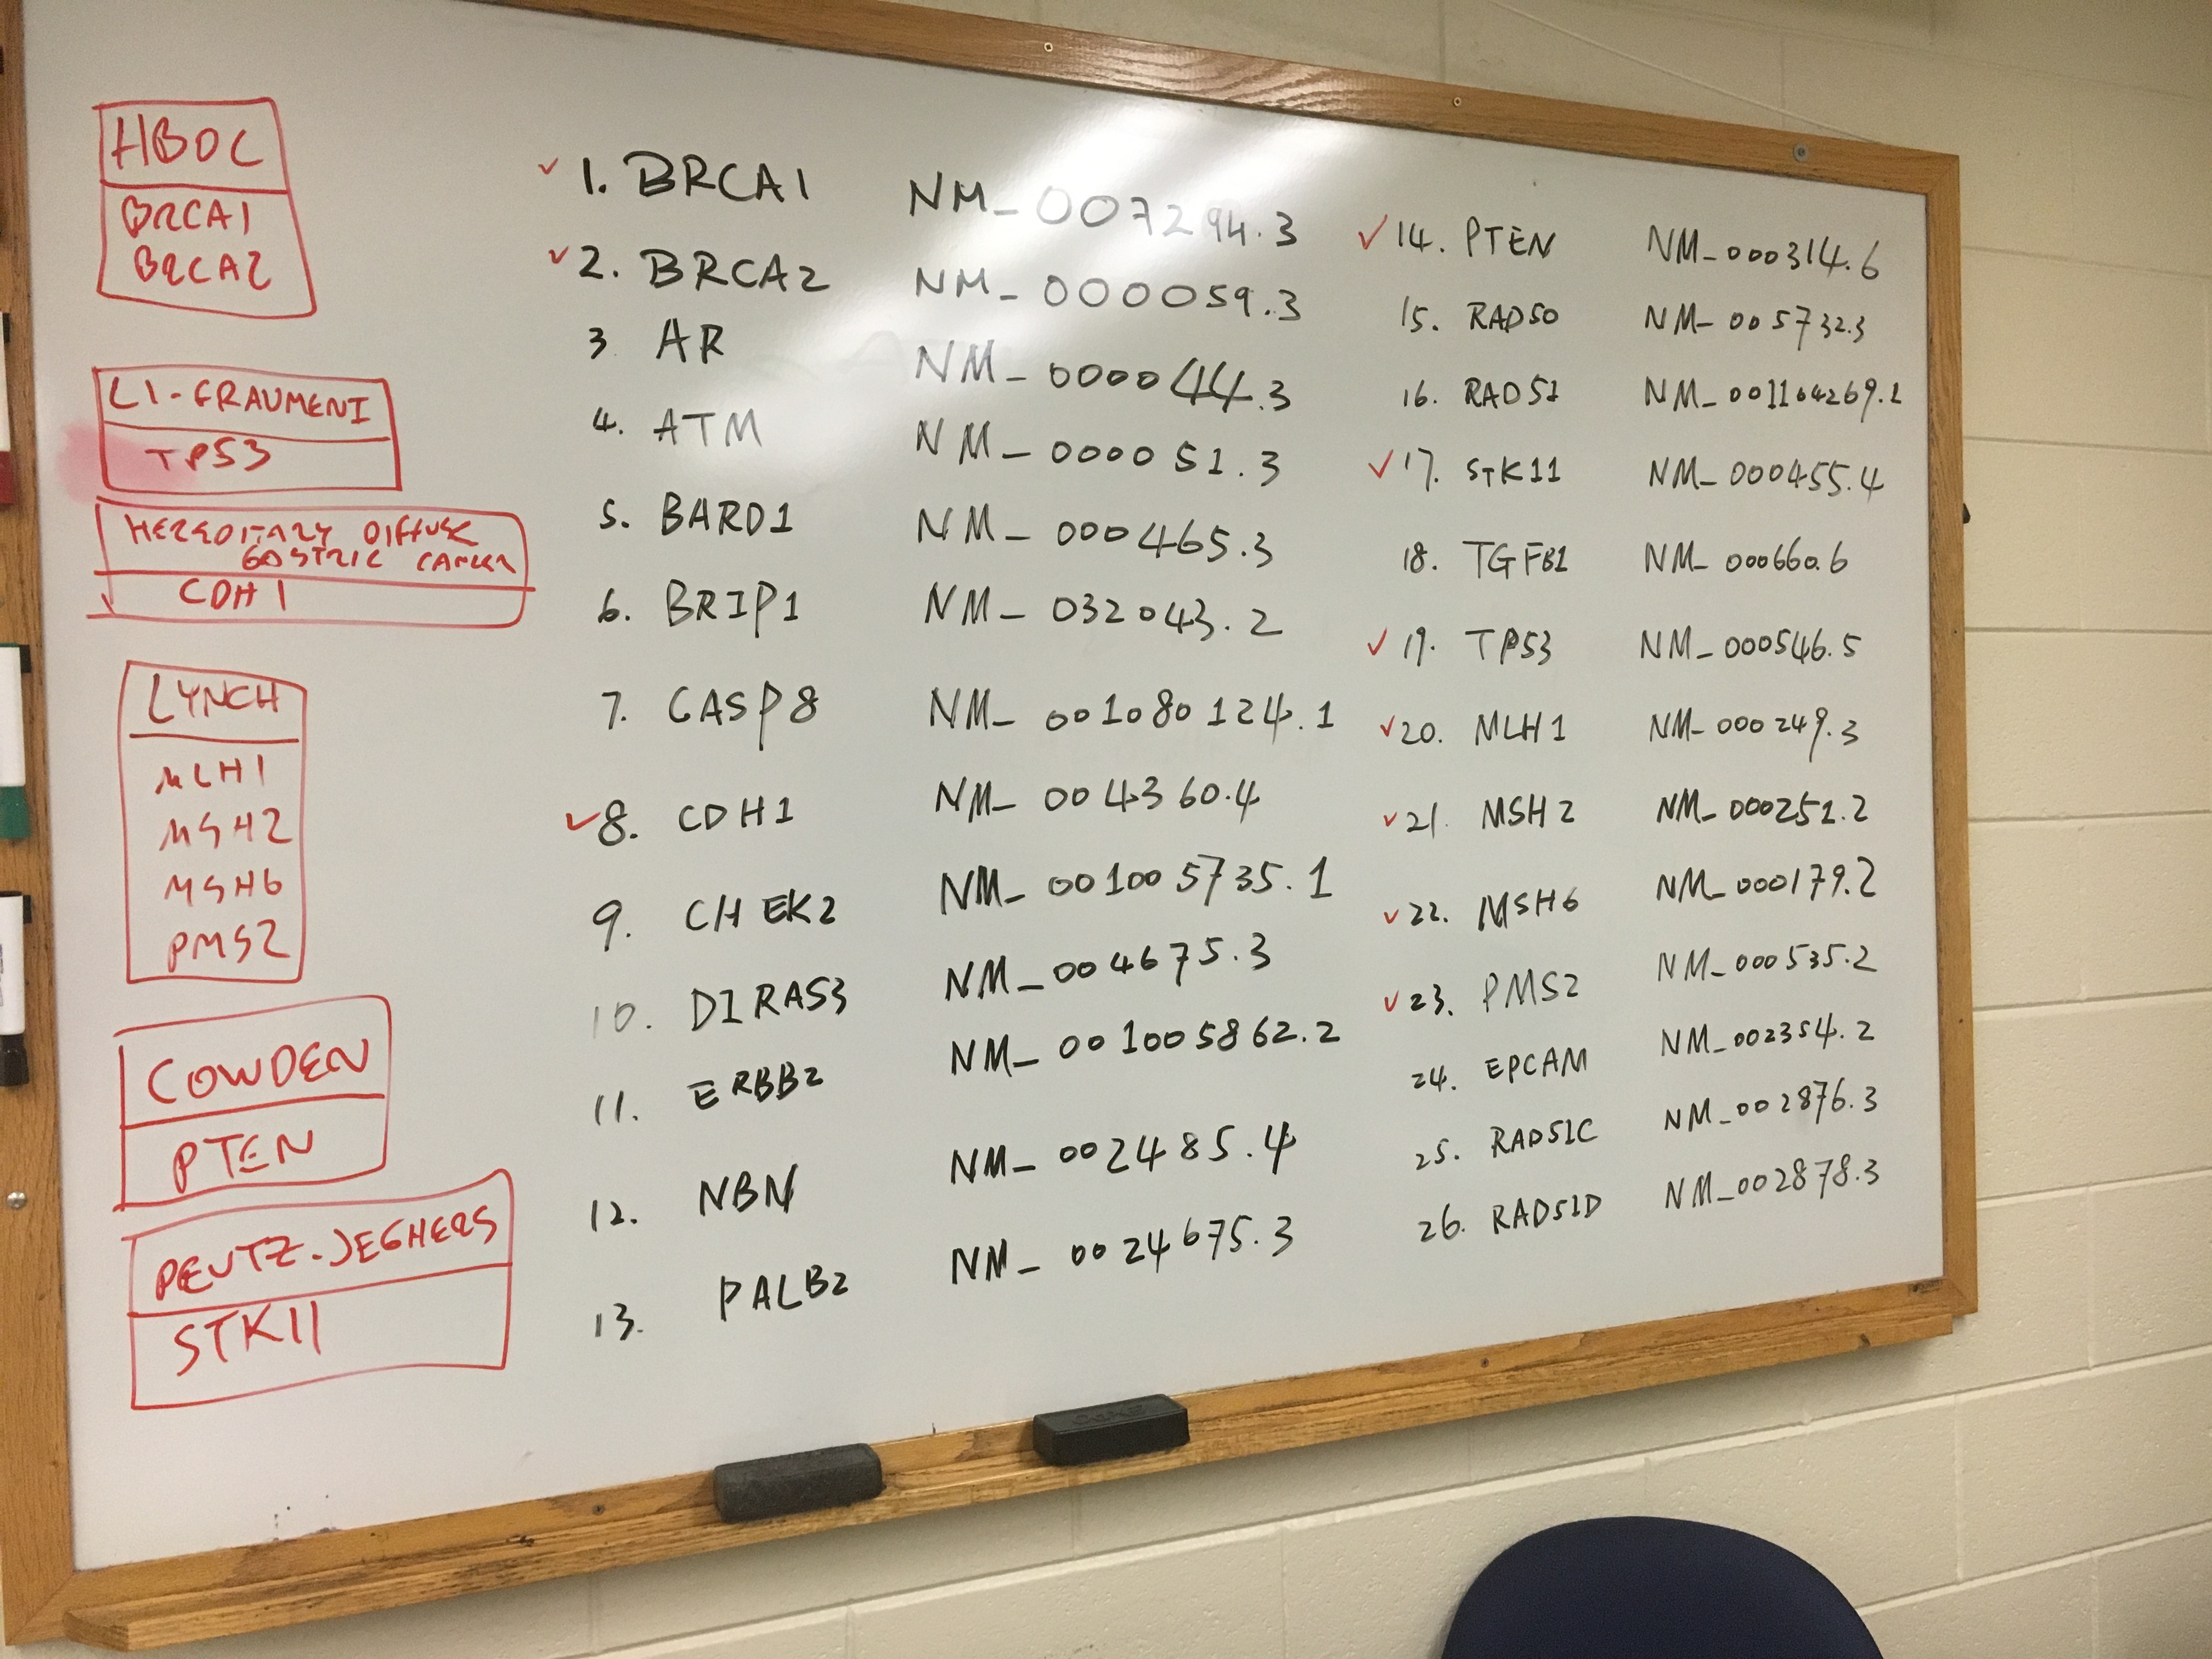 HBOC
BRCA1
BRCA2
LI-FRAUMENI
TP53
HEREDITARY DIFFUSE
GASTRIC CANCER
CDH1
LYNCH
MLH1
MSH2
MSH6
PMS2
COWDEN
PTEN
PEUTZ-JEGHERS
STK11
✓ 1. BRCA1 NM_007294.3
✓ 2. BRCA2 NM_000059.3
3 AR NM_000044.3
4. ATM NM_000051.3
5. BARD1 NM_000465.3
6. BRIP1 NM_032043.2
7. CASP8 NM_001080124.1
✓ 8. CDH1 NM_004360.4
9. CHEK2 NM_001005735.1
10. DIRAS3 NM_004675.3
11. ERBB2 NM_001005862.2
12. NBN NM_002485.4
13. PALB2 NM_0024675.3
✓ 14. PTEN NM_000314.6
15. RAD50 NM_005732.3
16. RAD51 NM_001164269.1
✓ 17. STK11 NM_000455.4
18. TGFB1 NM_000660.6
✓ 19. TP53 NM_000546.5
✓ 20. MLH1 NM_000249.3
✓ 21. MSH2 NM_000251.2
✓ 22. MSH6 NM_000179.2
✓ 23. PMS2 NM_000535.2
24. EPCAM NM_002354.2
25. RAD51C NM_002876.3
26. RAD51D NM_002878.3